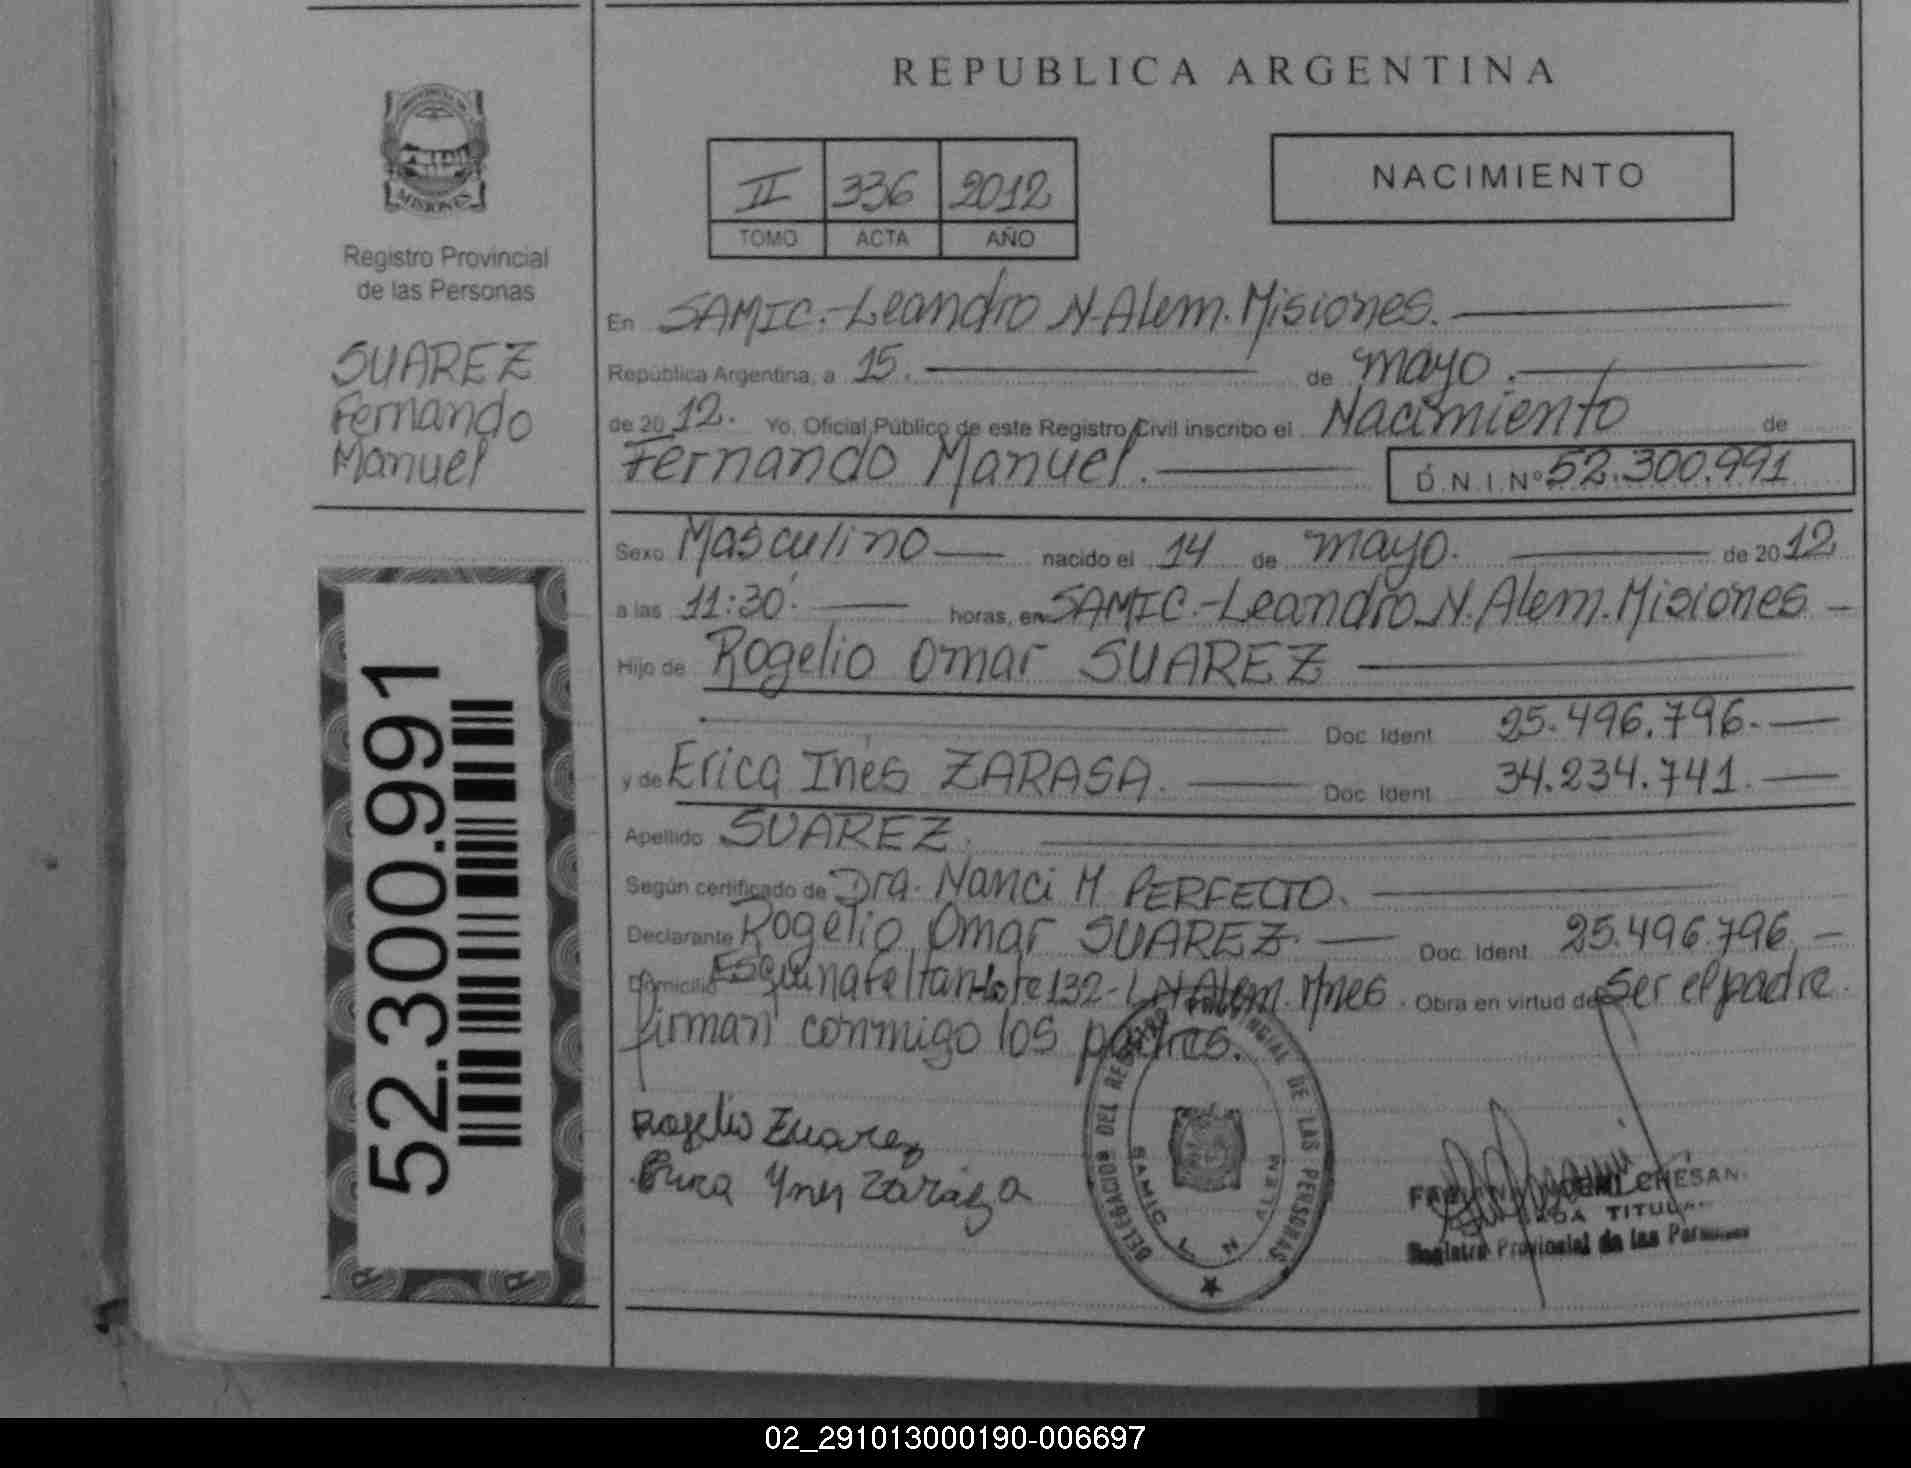 REPUBLICA ARGENTINA
MISIONES
Registro Provincial
de las Personas
SUAREZ
Fernando
Manuel
52.300.991
II 336 2012
TOMO ACTA AÑO
NACIMIENTO
En SAMIC.-Leandro N. Alem. Misiones.
República Argentina, a 15. de mayo.
de 2012. Yo, Oficial Público de este Registro Civil inscribo el Nacimiento de
Fernando Manuel. D.N.I.Nº 52.300.991
Sexo Masculino nacido el 14 de mayo. de 2012
a las 11:30. horas, en SAMIC.-Leandro N. Alem. Misiones
Hijo de Rogelio Omar SUAREZ
Doc. Ident. 25.496.796.
y de Erica Inés ZARASA. Doc. Ident. 34.234.741.
Apellido SUAREZ.
Según certificado de Dra. Nanci M PERFECTO.
Declarante Rogelio Omar SUAREZ. Doc. Ident. 25.496.796
Domicilio Esquina Feltan Lote 132-LN Alem. Mnes. Obra en virtud de Ser el padre.
firman conmigo los padres.
Rogelio Zuarez
Erica Ynes Zaraza
DELEGACION DEL REGISTRO PROVINCIAL DE LAS PERSONAS
SAMIC L. N. ALEM
CHESAN
TITULAR
Registro Provincial de las Personas
02_291013000190-006697